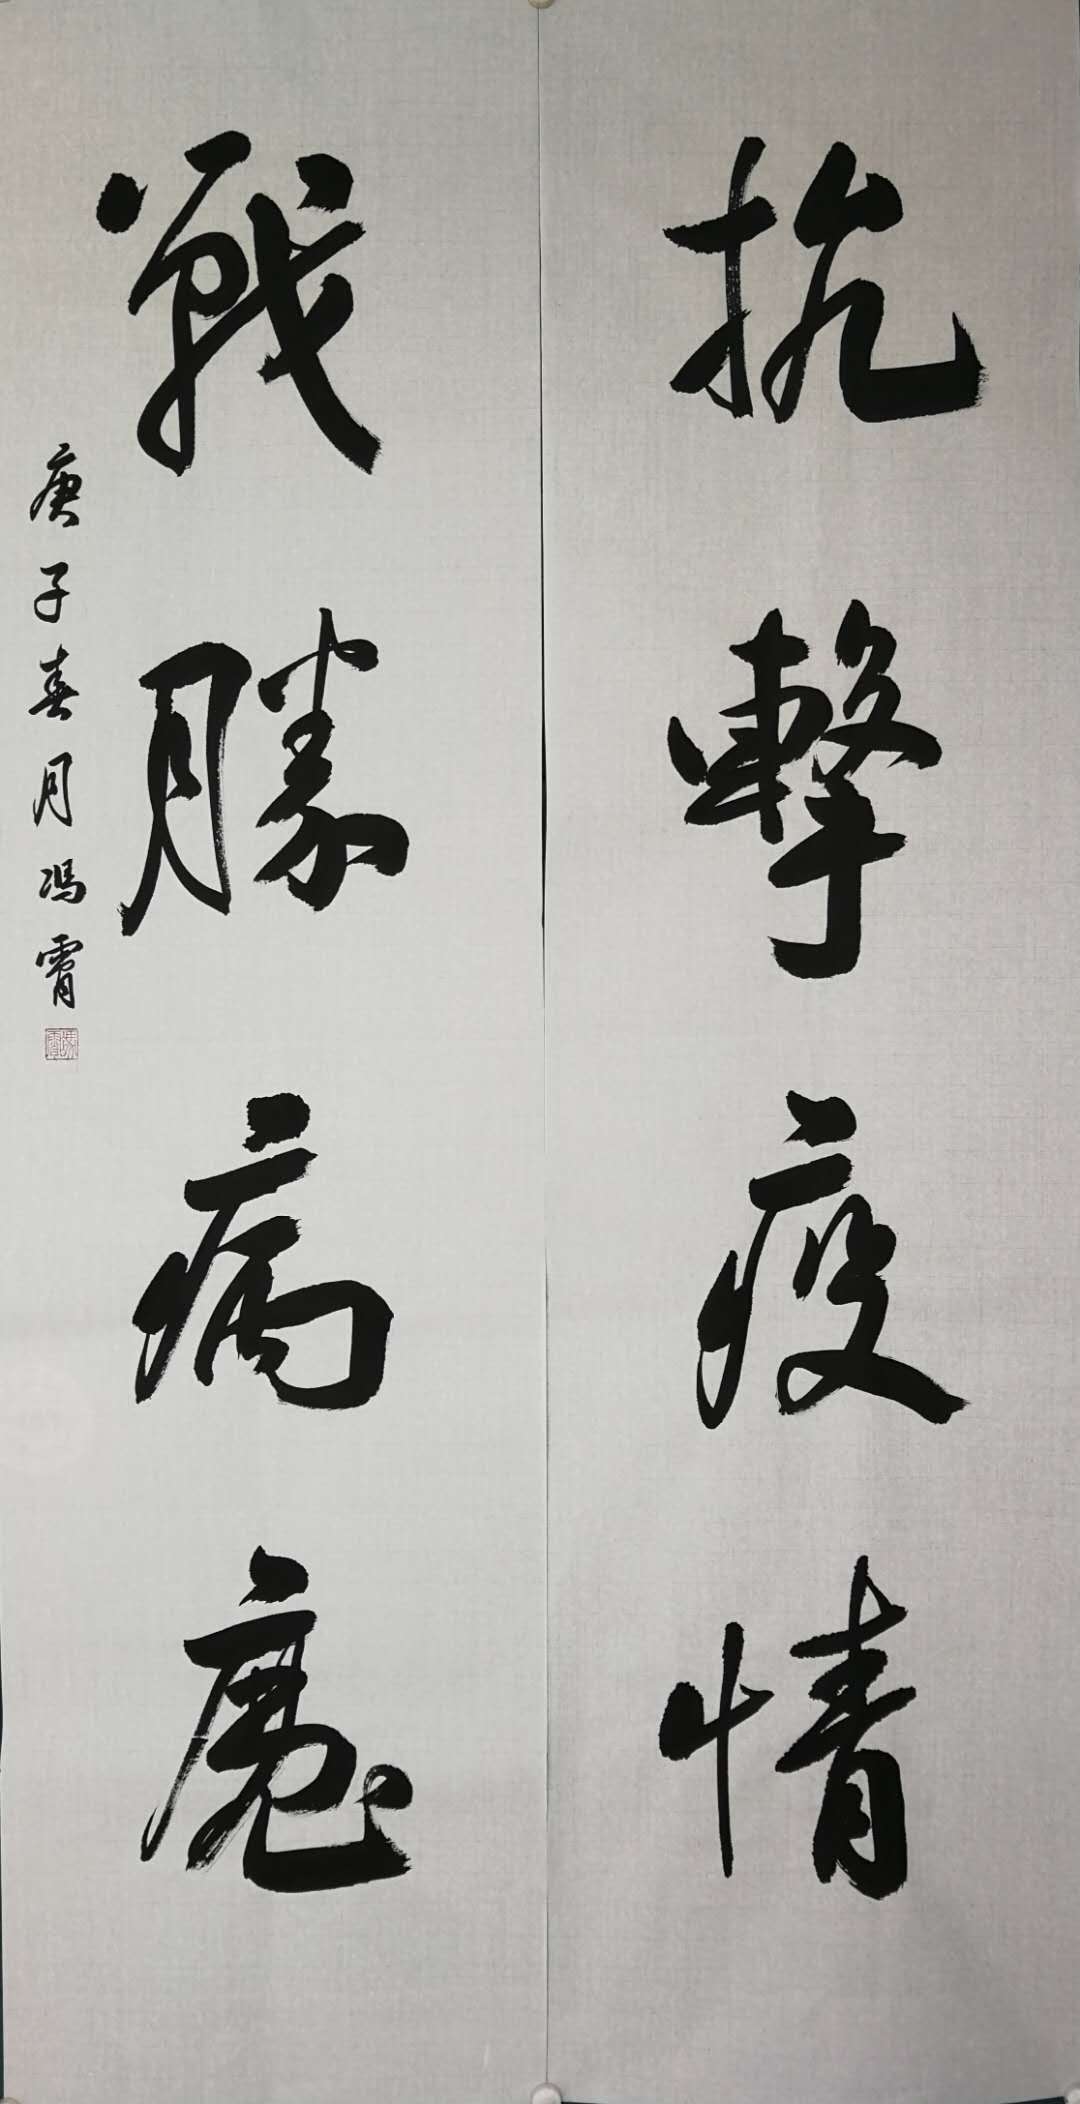 抗擊疫情
戰勝病魔
庚子春月冯霄